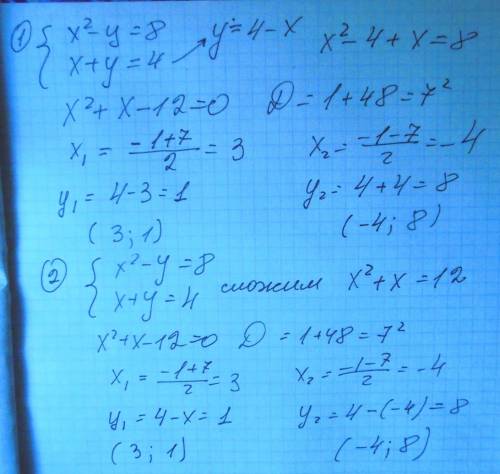 ① { x² - y = 8
x + y = 4 → y = 4 - x x² - 4 + x = 8
x² + x - 12 = 0 D = 1 + 48 = 7²
x₁ = (-1+7)/2 = 3 x₂ = (-1-7)/2 = -4
y₁ = 4 - 3 = 1 y₂ = 4 + 4 = 8
(3; 1) (-4; 8)
② { x² - y = 8
x + y = 4 сложим x² + x = 12
x² + x - 12 = 0 D = 1 + 48 = 7²
x₁ = (-1+7)/2 = 3 x₂ = (-1-7)/2 = -4
y₁ = 4 - x = 1 y₂ = 4 - (-4) = 8
(3; 1) (-4; 8)